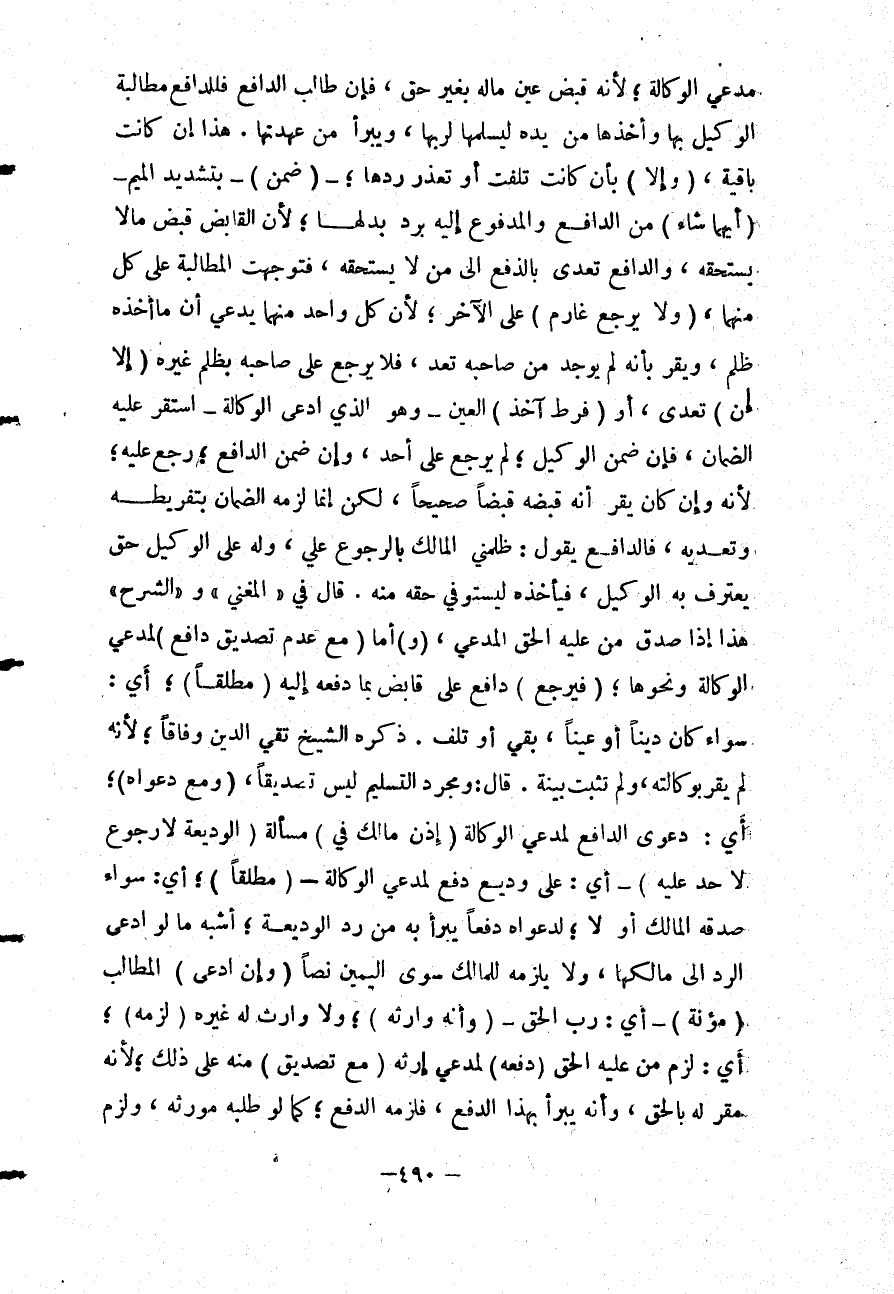 مدعي الوكالة ؛ لأنه قبض عين ماله بغير حق ، فإن طالب الدافع فللدافع مطالبة
الوكيل بها وأخذها من يده ليسلمها لربها ، ويبرأ من عهدتها . هذا إن كانت
باقية ، ( وإلا ) بأن كانت تلفت أو تعذر ردها ؛ ـ ( ضمن ) ـ بتشديد الميم ـ
( أيهما شاء ) من الدافـع والمدفوع إليه برد بدلهـــا ؛ لأن القابض قبض مالا
يستحقه ، والدافع تعدى بالدفع الى من لا يستحقه ، فتوجهت المطالبة على كل
منهما ، ( ولا يرجع غارم ) على الآخر ؛ لأن كل واحد منهما يدعي أن ماأخذه
ظلم ، ويقر بأنه لم يوجد من صاحبه تعد ، فلا يرجع على صاحبه بظلم غيره ( إلا
لمن ) تعدى ، أو ( فرط آخذ ) العين ـ وهو الذي ادعى الوكالة ـ استقر عليه
الضمان ، فإن ضمن الوكيل ؛ لم يرجع على أحد ، وإن ضمن الدافع ؛ رجع عليه ؛
لأنه وإن كان يقر أنه قبضه قبضاً صحيحاً ، لكن إنما لزمه الضمان بتفريطـــه
وتعـديه ، فالدافـع يقول : ظلمني المالك بالرجوع علي ، وله على الوكيل حق
يعترف به الوكيل ، فيأخذه ليستوفي حقه منه . قال في « المغني » و « الشرح »
هذا إذا صدق من عليه الحق المدعي ، ( و ) أما ( مع عدم تصديق دافع ) لمدعي
الوكالة ونحوها ؛ ( فيرجع ) دافع على قابض بما دفعه إليه ( مطلقـاً ) ؛ أي :
سواء كان ديناً أو عيناً ، بقي أو تلف . ذكره الشيخ تقي الدين وفاقاً ؛ لأنه
لم يقر بوكالته ، ولم تثبت ببينة . قال : ومجرد التسليم ليس تصديقاً ، ( ومع دعواه ) ؛
أي : دعوى الدافع لمدعي الوكالة ( إذن مالك في ) مسألة ( الوديعة لا رجوع
لا حد عليه ) ـ أي : على وديـع دفع لمدعي الوكالة ـ ( مطلقاً ) ؛ أي : سواء
صدقه المالك أو لا ؛ لدعواه دفعاً يبرأ به من رد الوديعـة ؛ أشبه ما لو ادعى
الرد الى مالكها ، ولا يلزمه للمالك سوى اليمين نصاً ( وإن ادعى ) المطالب
( مؤنة ) ـ أي : رب الحق ـ ( وأنه وارثه ) ؛ ولا وارث له غيره ( لزمه ) ؛
أي : لزم من عليه الحق ( دفعه ) لمدعي إرثه ( مع تصديق ) منه على ذلك ؛ لأنه
مقر له بالحق ، وأنه يبرأ بهذا الدفع ، فلزمه الدفع ؛ كما لو طلبه مورثه ، ولزم
ـ ٤٩٠ ـ